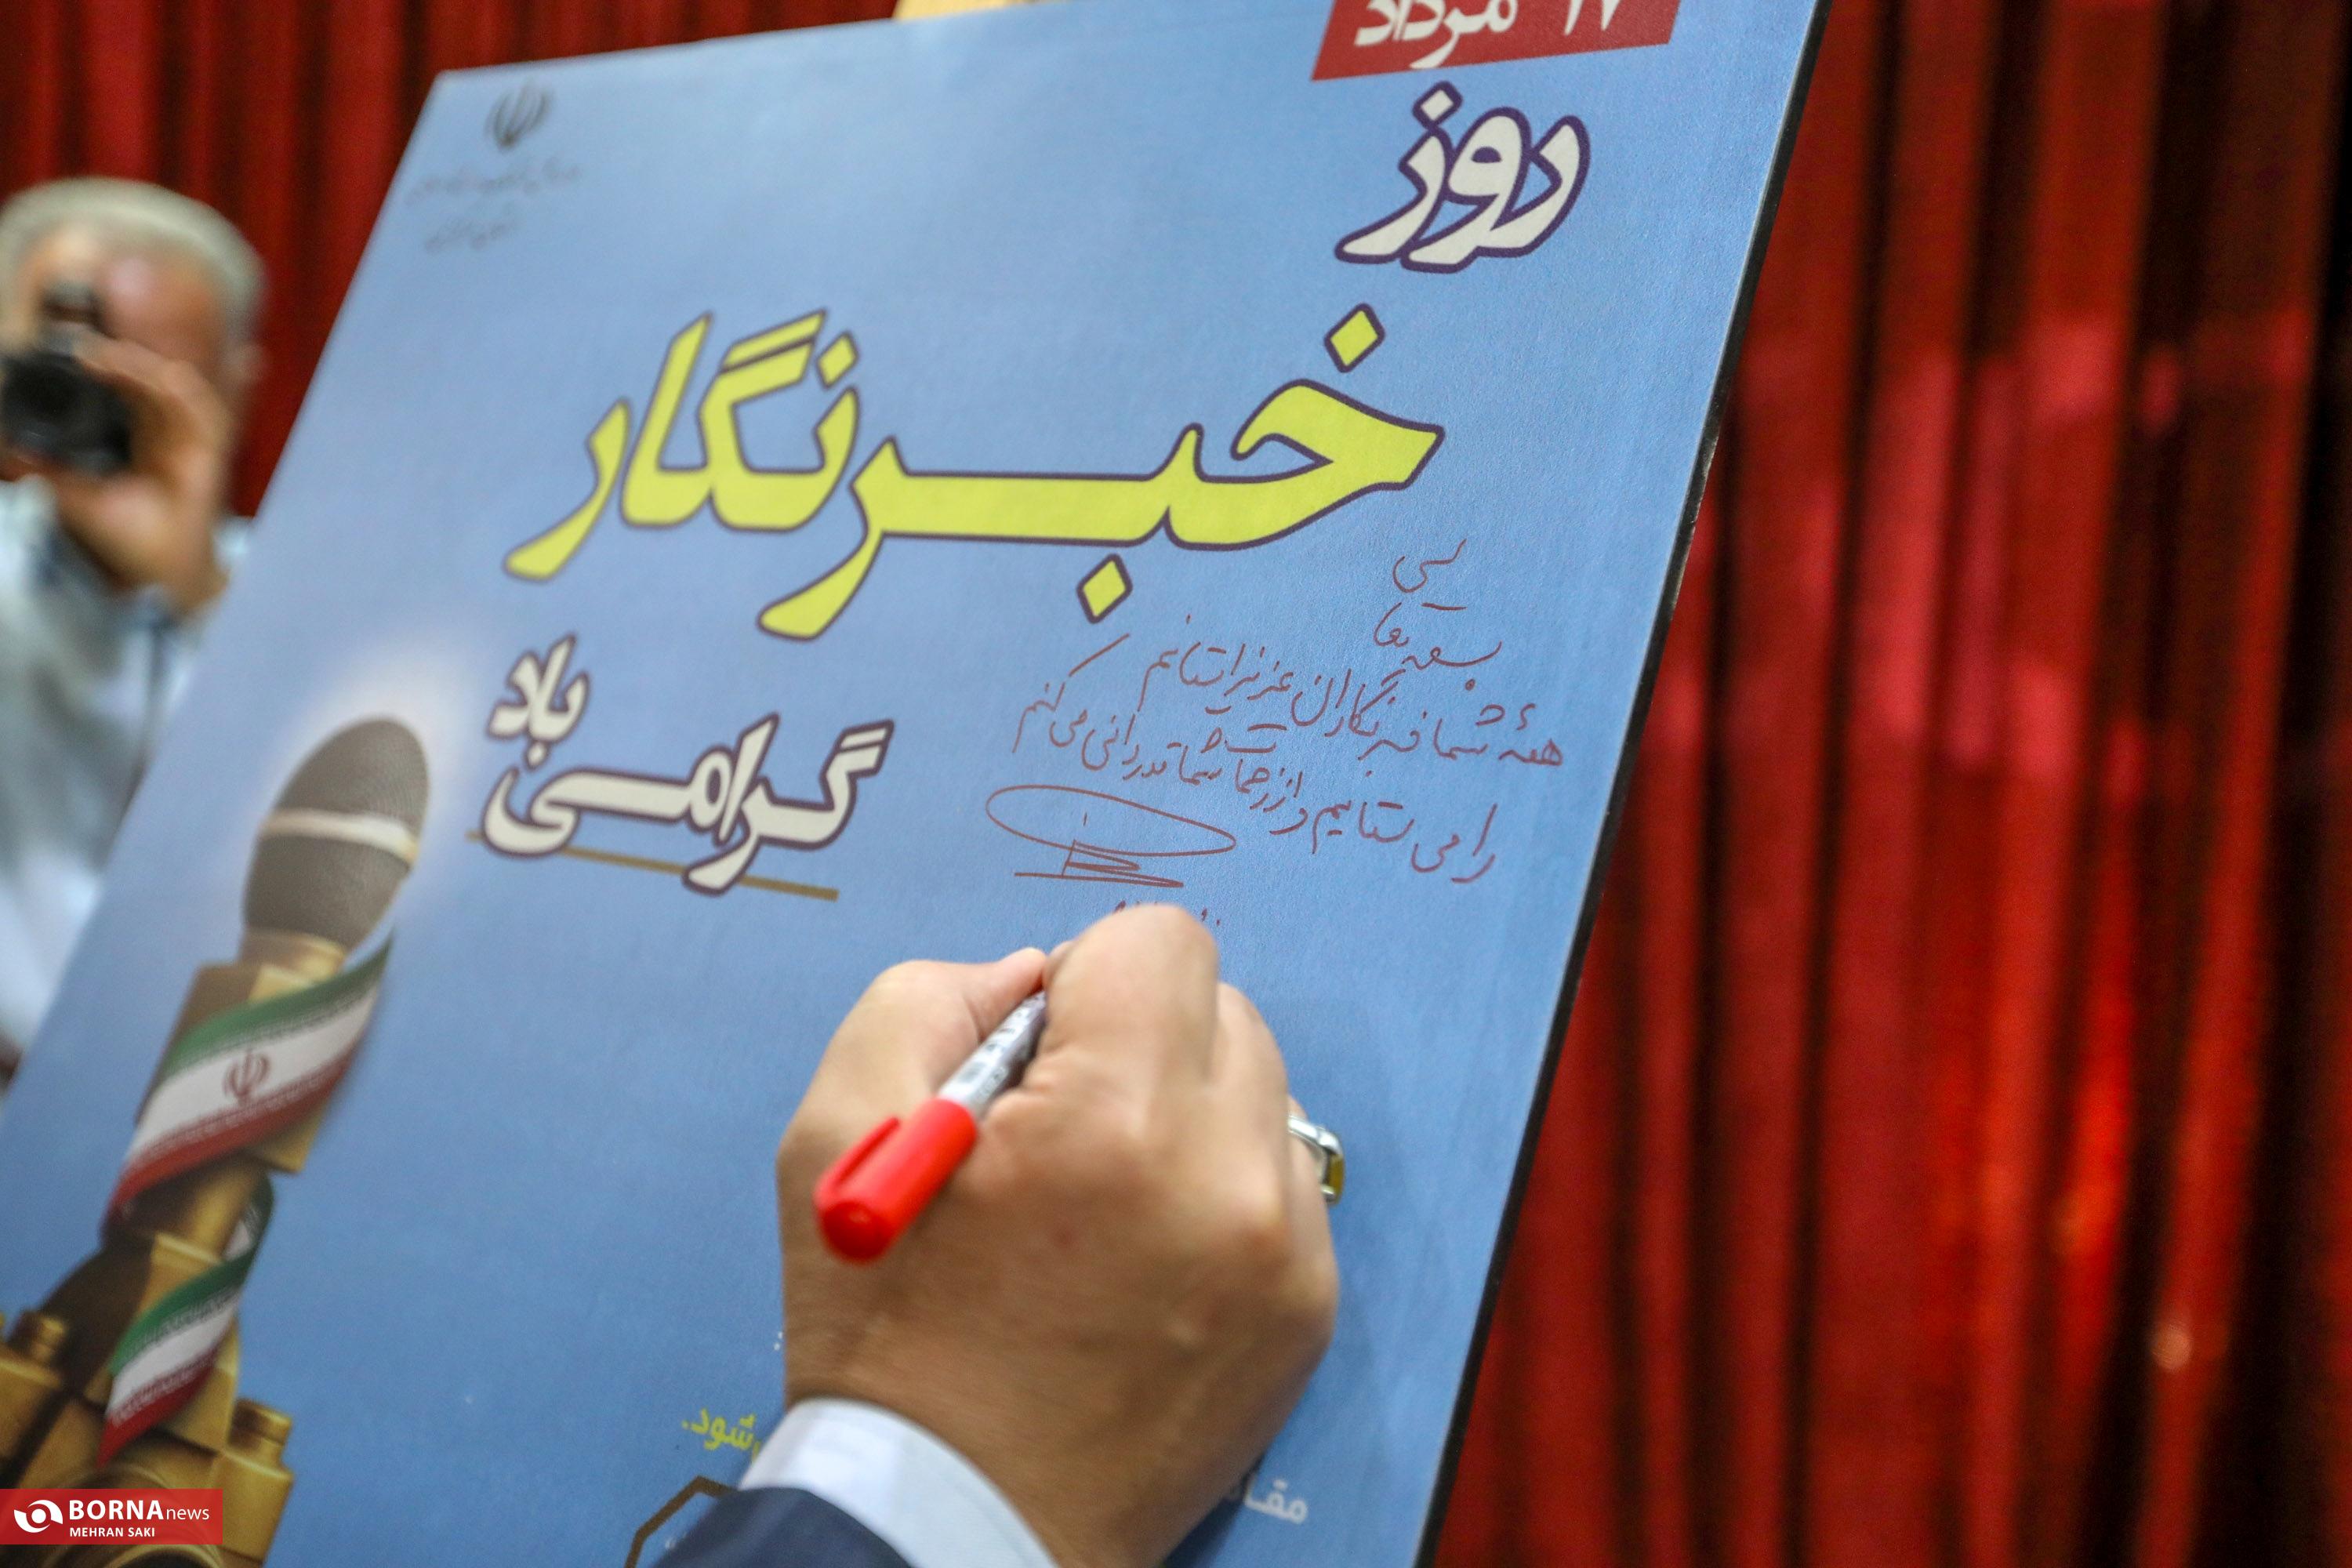 ۱۷ مرداد
روز
خبرنگار
گرامی باد
بسمه تعالی
همهٔ شما خبرنگاران عزیز استانم
را می ستایم و از زحمات شما قدردانی می کنم
شود.
BORNA news
MEHRAN SAKI